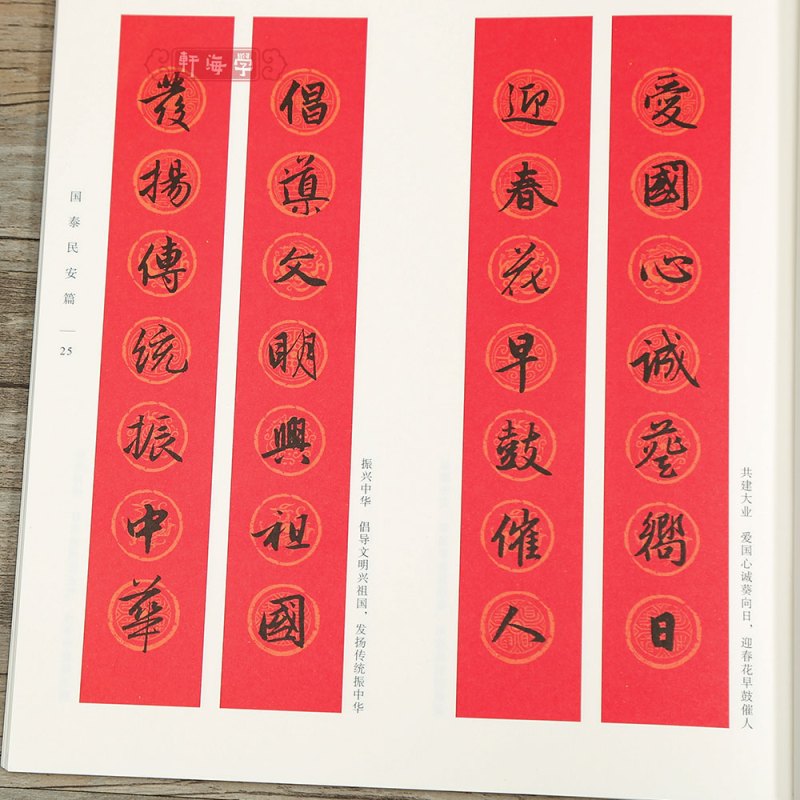 愛國心誠葵嚮日
迎春花早鼓催人
共建大业 爱国心诚葵向日，迎春花早鼓催人
倡導文明興祖國
發揚傳統振中華
振兴中华 倡导文明兴祖国，发扬传统振中华
国泰民安篇
25
軒海學